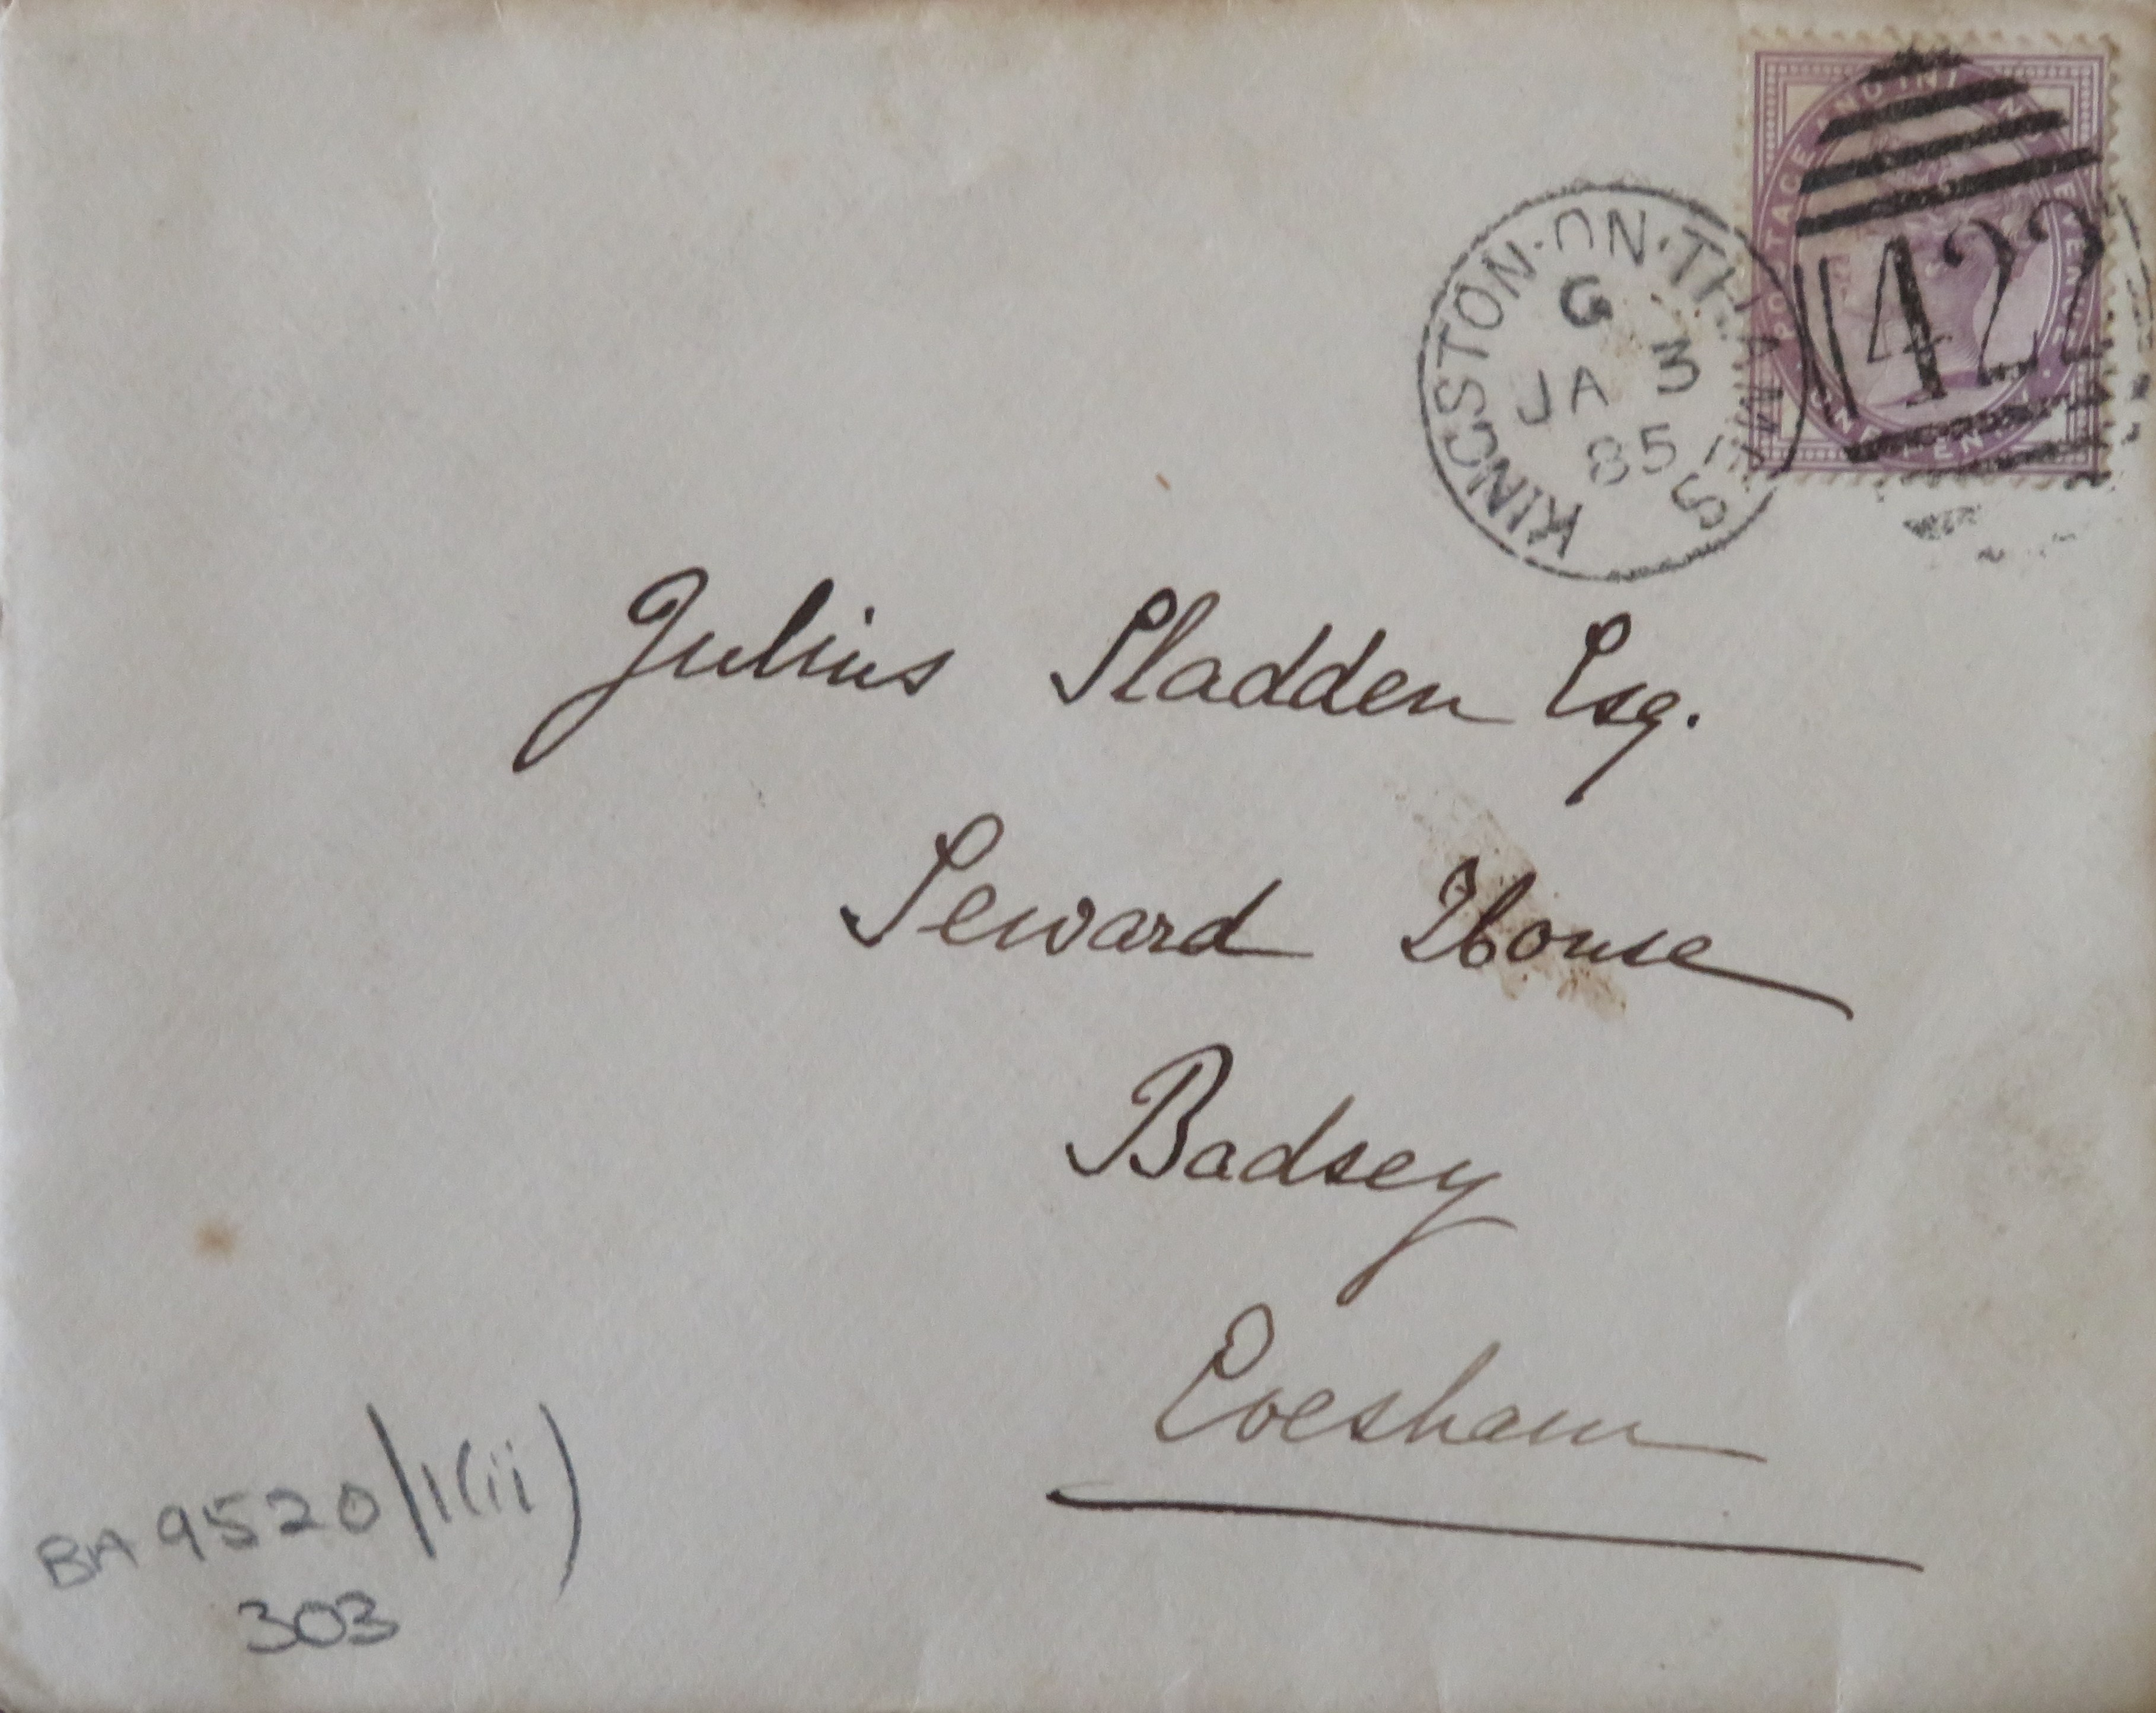 POSTAGE AND INLAND REVENUE
ONE PENNY
422
KINGSTON·ON·THAMES
G
JA 3
85
Julius Sladden Esq.
Seward House
Badsey
Evesham
BA 9520/1(ii)
303